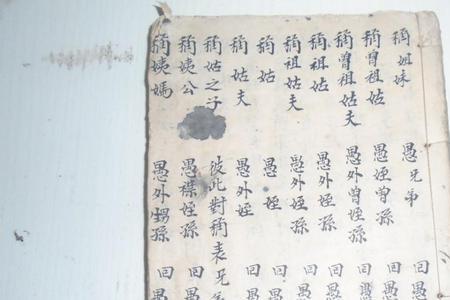 稱姐妹 愚兄弟 回愚
稱曾祖姑 愚姪曾孫 回愚
稱曾祖姑夫 愚外曾姪孫 回愚
稱祖姑 愚外姪孫 回愚
稱祖姑夫 愚外姪孫 回愚
稱姑 愚姪 回愚
稱姑夫 愚外姪 回愚
稱姑之子 彼此對稱表兄弟
稱姨公 愚襟姪孫 回愚
稱姨媽 愚外甥孫 回愚